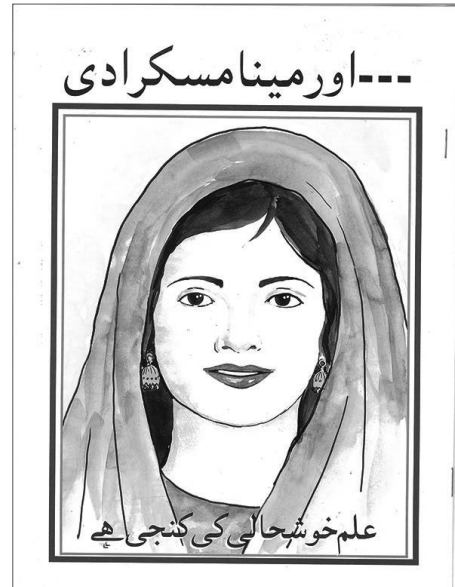 ---اور مینا مسکرا دی
علم خوشحالی کی کنجی ہے